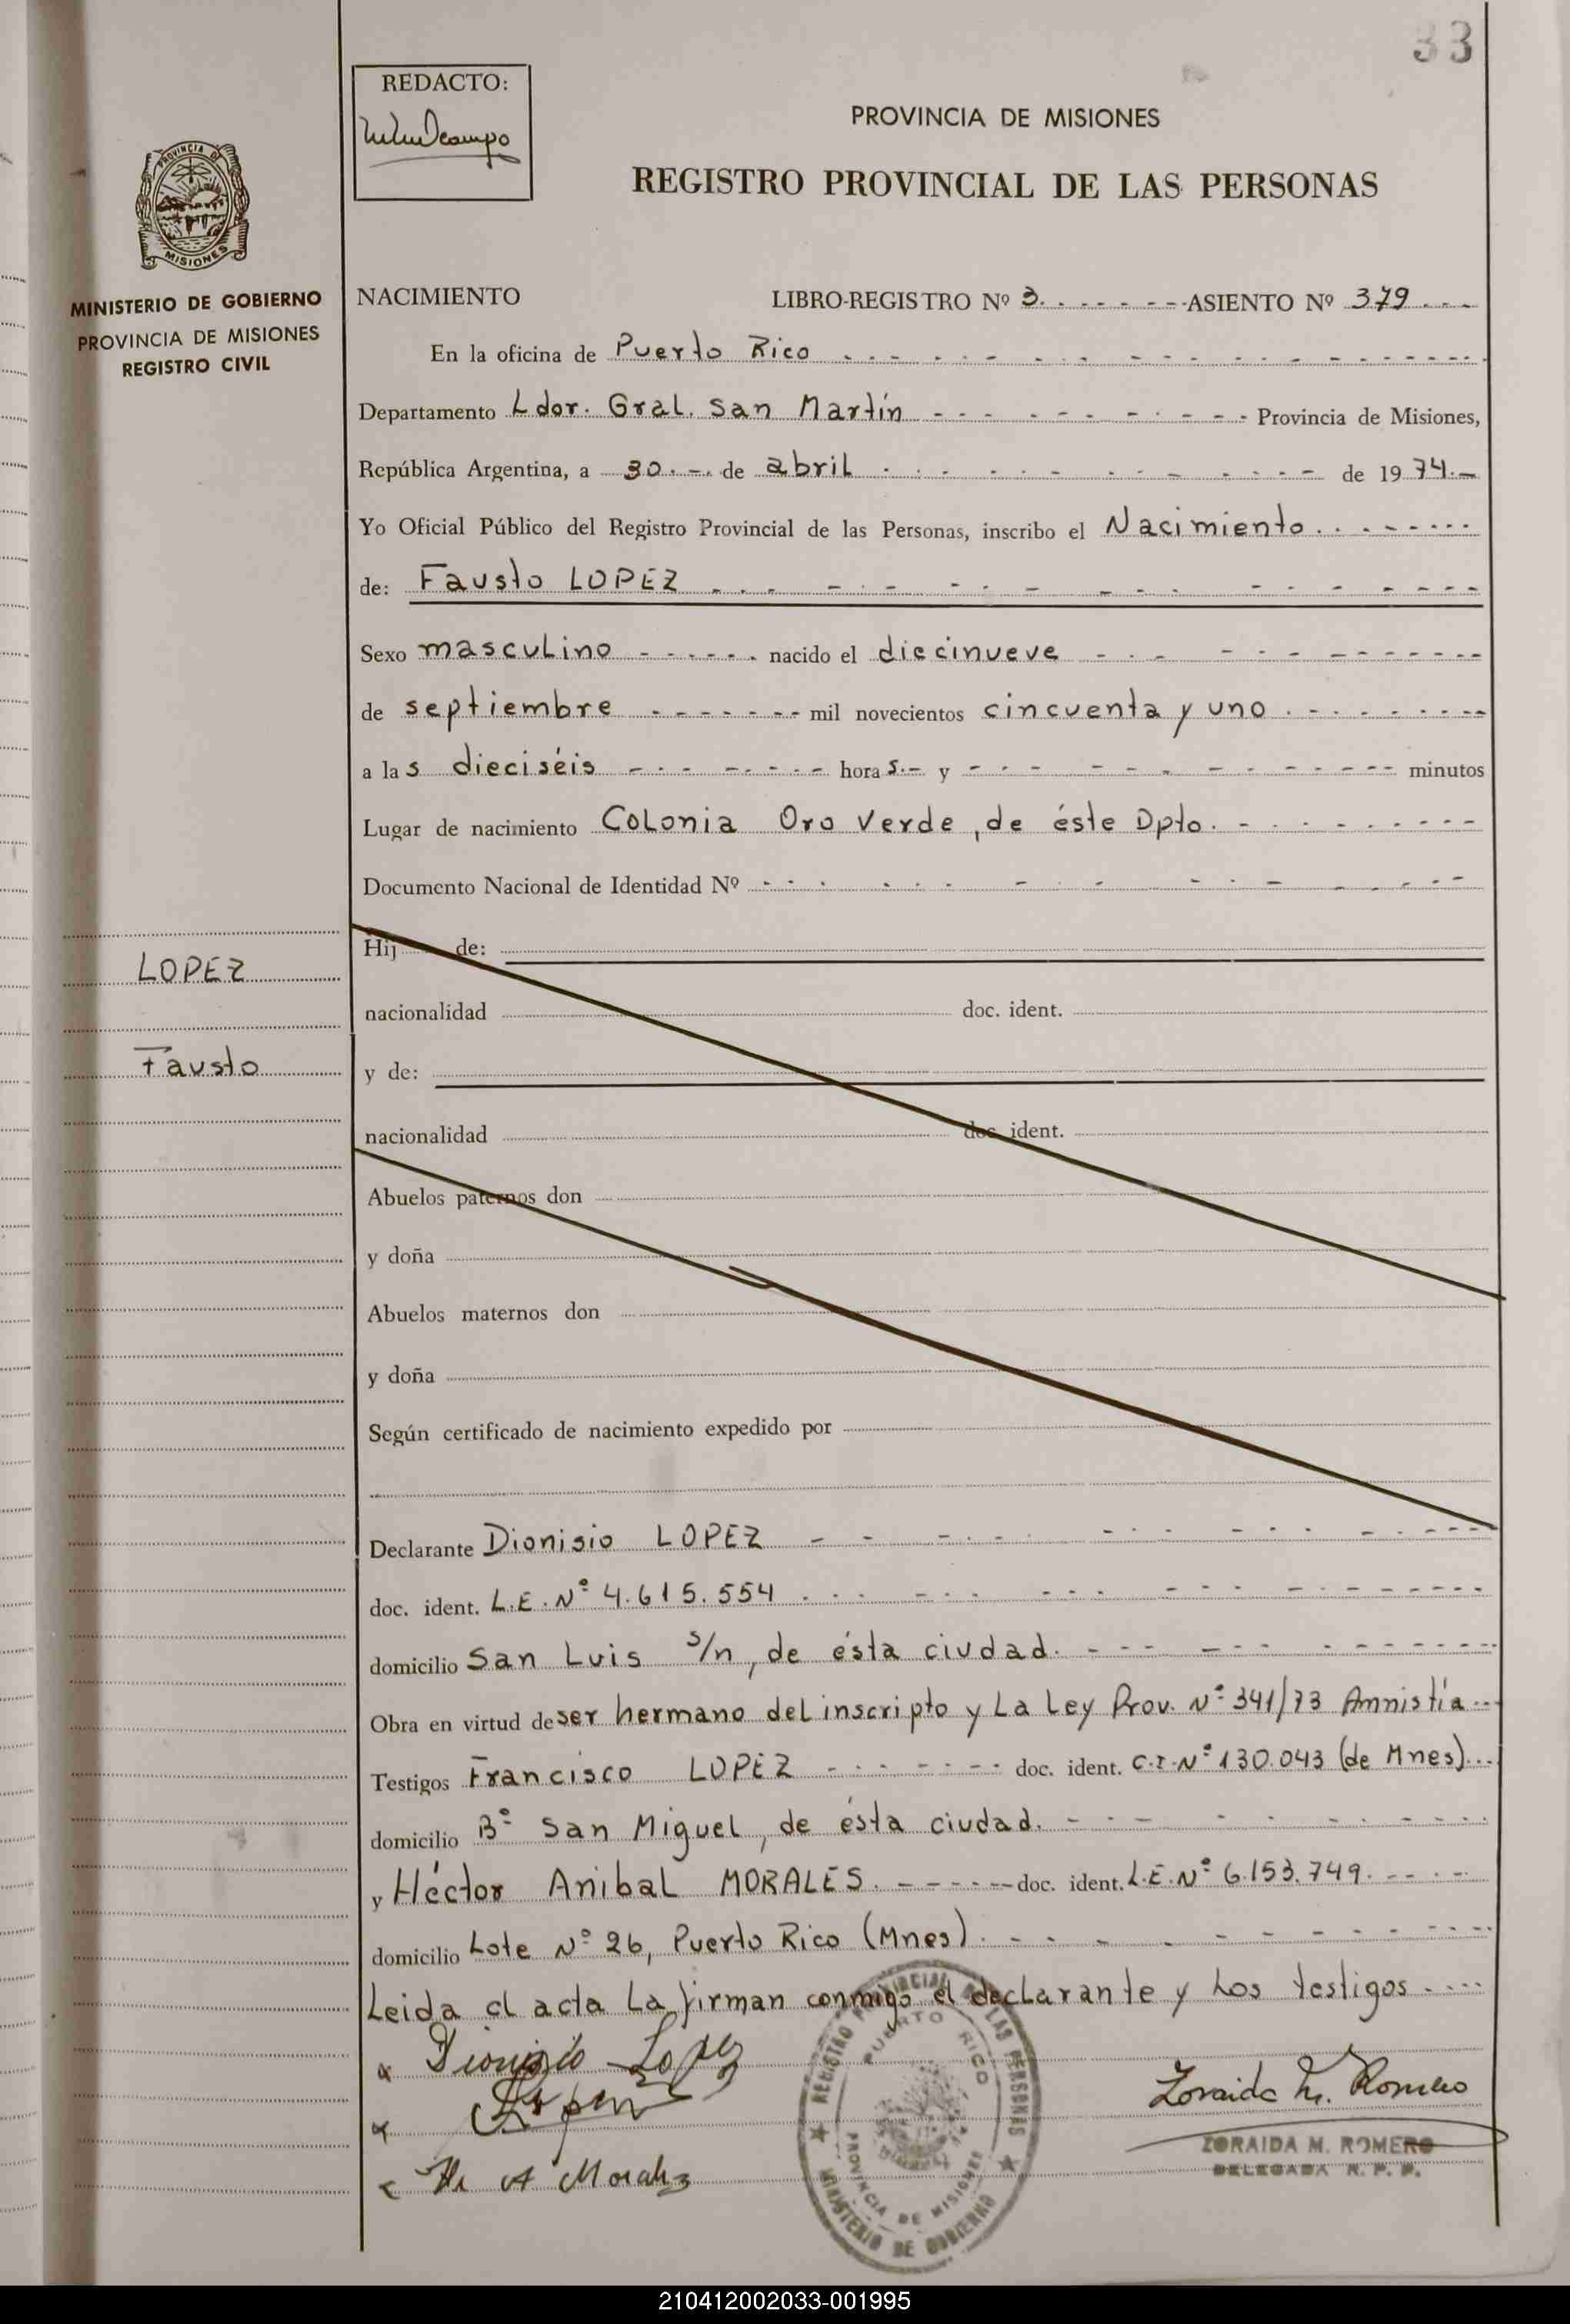 33
REDACTO:
PROVINCIA DE MISIONES
REGISTRO PROVINCIAL DE LAS PERSONAS
PROVINCIA DE
MISIONES
MINISTERIO DE GOBIERNO
PROVINCIA DE MISIONES
REGISTRO CIVIL
NACIMIENTO LIBRO-REGISTRO Nº 3. ASIENTO Nº 379
En la oficina de Puerto Rico
Departamento Ldor. Gral. San Martín Provincia de Misiones,
República Argentina, a 30.-. de abril de 1974.-
Yo Oficial Público del Registro Provincial de las Personas, inscribo el Nacimiento.
de: Fausto LOPEZ
Sexo masculino nacido el diecinueve
de septiembre mil novecientos cincuenta y uno
a las dieciséis horas.- y minutos
Lugar de nacimiento Colonia Oro Verde, de éste Dpto.
Documento Nacional de Identidad Nº
LOPEZ
Fausto
Hij de:
nacionalidad doc. ident.
y de:
nacionalidad doc. ident.
Abuelos paternos don
y doña
Abuelos maternos don
y doña
Según certificado de nacimiento expedido por
Declarante Dionisio LOPEZ
doc. ident. L.E. Nº 4.615.554
domicilio San Luis s/n, de ésta ciudad.
Obra en virtud de ser hermano del inscripto y La Ley Prov. Nº 341/73 Amnistía
Testigos Francisco LOPEZ doc. ident. C.I. Nº 130.043 (de Mnes)
domicilio Bº San Miguel, de ésta ciudad.
y Héctor Anibal MORALES. doc. ident. L.E. Nº 6.153.749.
domicilio Lote Nº 26, Puerto Rico (Mnes).
Leida el acta La firman conmigo el declarante y Los testigos
Dionisio Lopez
Lopez
H A Morales
REGISTRO PROVINCIAL DE LAS PERSONAS
PUERTO RICO
PROVINCIA DE MISIONES
MINISTERIO DE GOBIERNO
Zoraida M. Romero
ZORAIDA M. ROMERO
DELEGADA R. P. P.
210412002033-001995